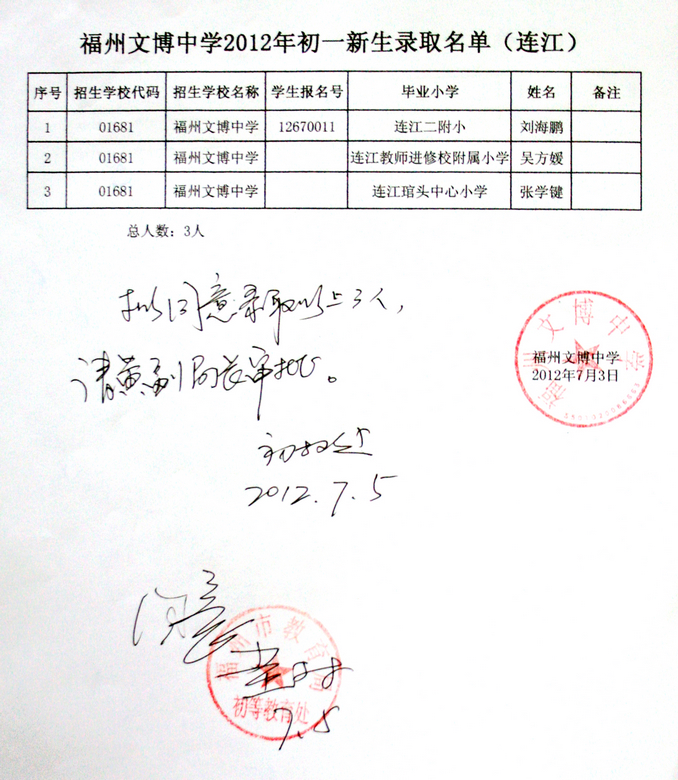 福州文博中学2012年初一新生录取名单（连江）
序号 招生学校代码 招生学校名称 学生报名号 毕业小学 姓名 备注
1 01681 福州文博中学 12670011 连江二附小 刘海鹏
2 01681 福州文博中学 连江教师进修校附属小学 吴方媛
3 01681 福州文博中学 连江琯头中心小学 张学键
总人数：3人
拟同意录取以上3人，
请黄副局长审批。
福州文博中学
福州文博中学
2012年7月3日
初教处
2012.7.5
同意
福州市教育局
初等教育处
7.5